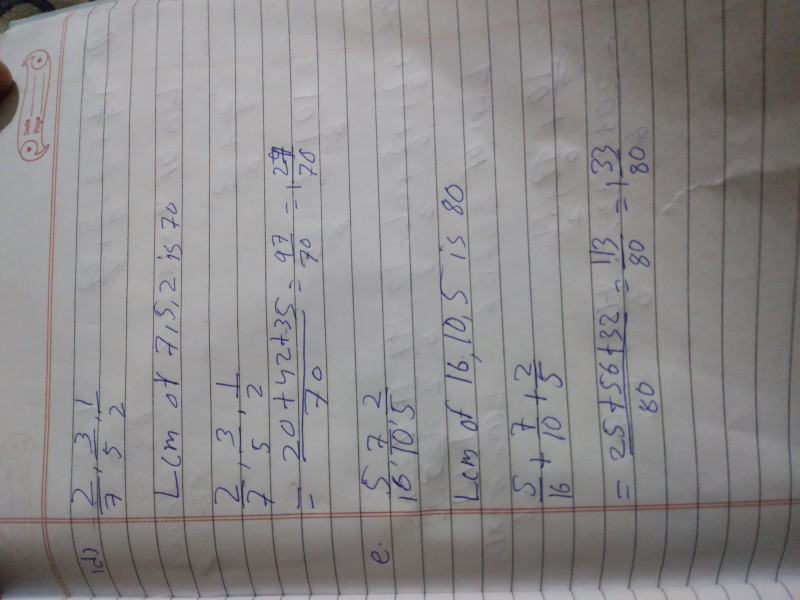 Date
Page
(d) 2/7, 3/5, 1/2
Lcm of 7,5,2 is 70
2/7, 3/5, 1/2
= 20+42+35/70 = 97/70 = 1 27/70
e. 5/16, 7/10, 2/5
Lcm of 16,10,5 is 80
5/16 + 7/10 + 2/5
= 25+56+32/80 = 113/80 = 1 33/80